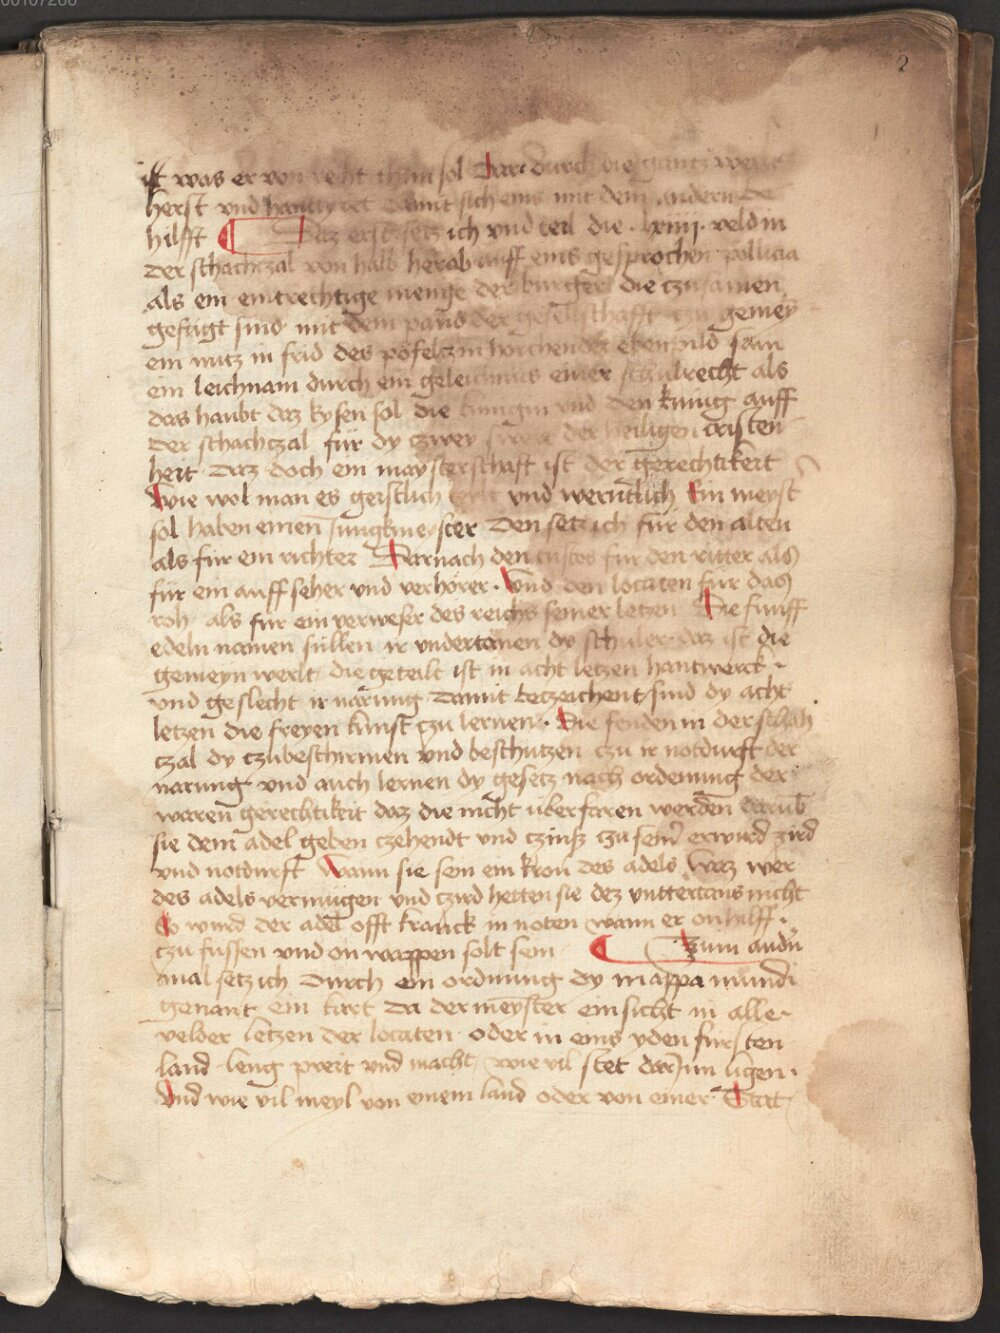 00107266
2
ist was er von reht thun sol Dar durch die gantz werlt
herst vnd hanthabet Damit sich eins mit dem andern be
hilfft Daz erst setz ich vnd teil die · lxiiii · veld in
der schachczal von halb herab auff eins gesprochen pollicia
als ein eintrechtige menge der burger die czusamen
gefugt sind mit dem pand der gesellschafft czu gemeyn
ein nutz in frid des pofels in horchender ebenpild sam
ein leichnam durch ein geleichnus einer schulrecht als
das haubt daz kysen sol die kunigin vnd den kunig auff
der schachczal für dy czwey der heiligen cristen
heit Daz doch ein maysterschaft ist der gerechtikeit
Wie wol man es geistlich teylt vnd werntlich Ein meyst
sol haben einen Jungkmeyster Den setz ich für den alten
als für ein richter Darnach den custos für den ritter als
für ein auffseher vnd verhörer · Vnd den locaten für das
roh als für ein verweser des reichs seiner letzen Die funff
edeln namen süllen ir vndertanen dy schuler daz ist die
gemeyn werlt die geteilt ist in acht letzen hantwerck ·
vnd geslecht ir narung Damit betzeichent sind dy acht
letzen die freyen kunst czu lernen · Die fenden in der schach
czal dy czubeschirmen vnd beschutzen czu ir notdurft der
narung vnd auch lernen dy gesetz nach ordenung der
waren gerechtikeit daz die nicht überfaren werden darub
sie dem adel geben czehendt vnd czinsz czu sein erwird zird
vnd notdurft Wann sie sein ein kron des adels Waz wer
des adels vermügen vnd czird hetten sie dez vntertans nicht
So wurd der adel offt kranck in noten wann er on hilff ·
czu fussen vnd on wappen solt sein Zum andn
mal setz ich durch ein ordnung dy mappa mundi
genant ein kart Da der meyster ein sicht in alle ·
velder letzen der locaten · oder in eins yden fürsten
land leng preit vnd macht wie vil stet dar Inn ligen ·
Vnd wie vil meyl von einem land oder von einer Stat